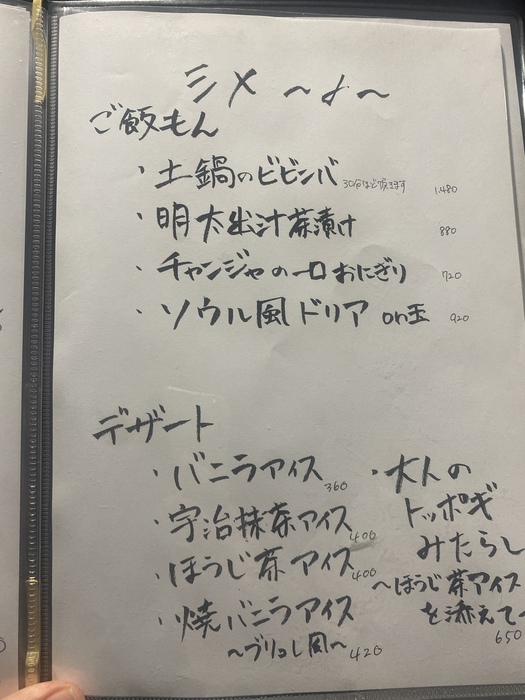 シメ
ご飯もん
・土鍋のビビンバ 30分ほど頂きます 1,480
・明太出汁茶漬け 880
・チャンジャの一口おにぎり 720
・ソウル風ドリア on玉 920
デザート
・バニラアイス 360
・宇治抹茶アイス 400
・ほうじ茶アイス 400
・焼バニラアイス
〜ブリュレ風〜 420
・大人の
トッポギ
みたらし
〜ほうじ茶アイス
を添えて〜
650